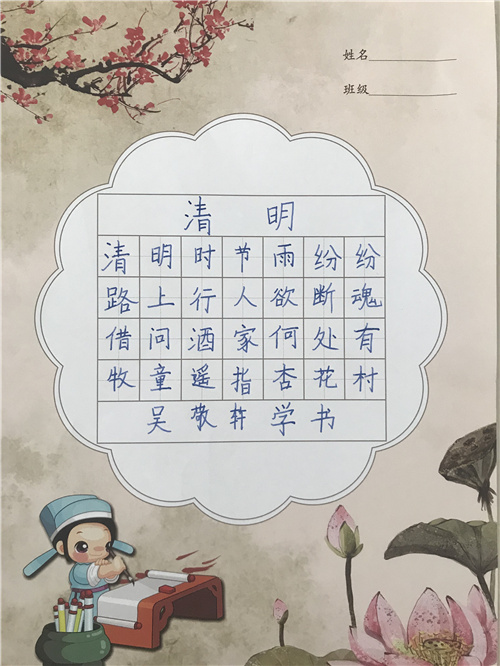 姓名
班级
清明
清明时节雨纷纷
路上行人欲断魂
借问酒家何处有
牧童遥指杏花村
吴敬軿学书